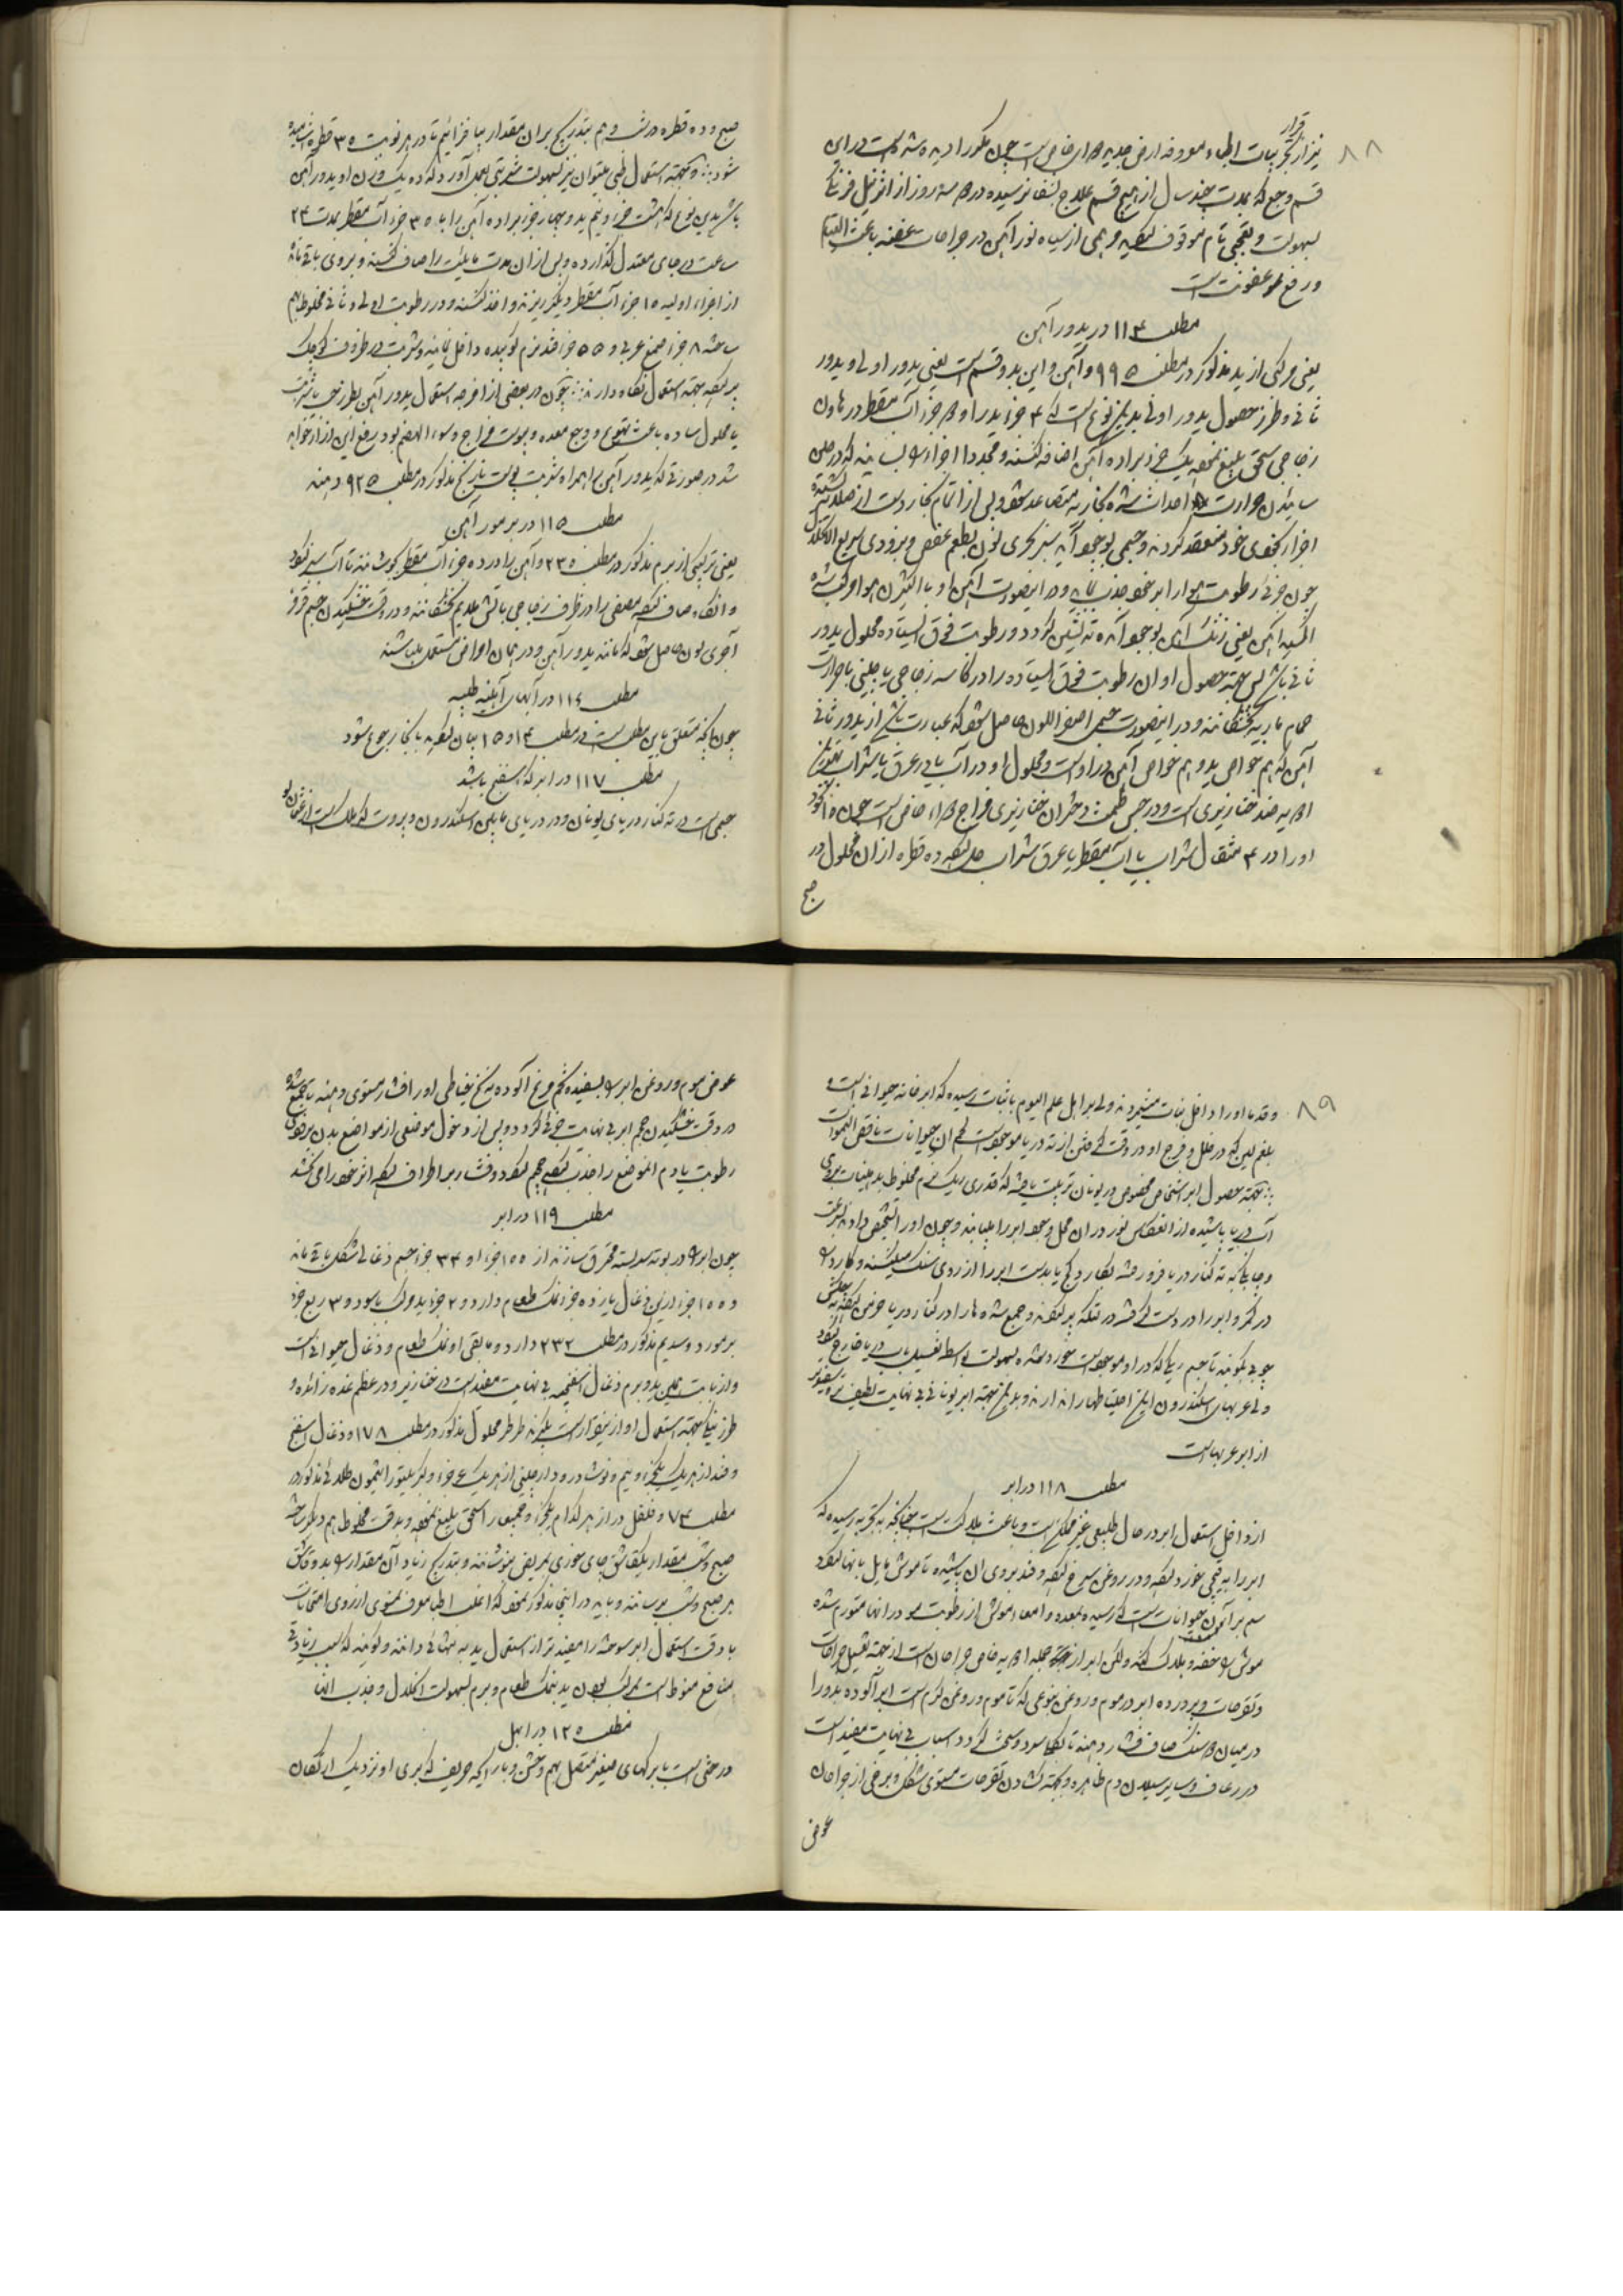 ۸۸
قرار
نیز از تجربیات اطباء معروفه ارض جدیده دوای خاصی است چون مکرر ادیده شده است در این
قسم وجع که بمدت چند سال از هیچ قسم علاج شفا نرسیده در سه روز از اثر
بسهولت و تعجبی تام موقوف کردیده مرهمی از سیاه نور آهن در جراحات عفنه باعث التیام
و رفع عفونت است
مطلب ۱۱۴ در یدور آهن
یعنی مرکبی از ید مذکور در مطلب ۹۹۵ و آهن و این بدو قسم است یعنی یدور اولی و یدور
ثانی و طرز حصول یدور اولی بدین نوع است که ۴ جزء ید را و جزء آب مقطر در هاون
زجاجی سحق بلیغ نموده یک جزء براده آهن اضافه کنند و مجددا اجزاء را بسایند که در حین
سائیدن حرارت احداث شده بخار ید متصاعد شود و پس از اتمام بخار دست از صلایه کشیده
اجزا بخودی خود منعقد کردند و جسمی بوجود آید سبز بحری لون بطعم عفص و بزودی سریع الانحلال
چون جزئی رطوبت هوا را بر خود جذب نماید و در اینصورت آهن او با اکسیژن هوا مرکب شده
اکسید آهن یعنی زنگ آهن بوجود آمده ته نشین کردد و رطوبت فوق ایستاده محلول یدور
ثانی باشد پس جهة حصول او آن رطوبت فوق ایستاده را در کاسه زجاجی یا چینی با حرارت
حمام ماریه بخشکانند و در اینصورت جسمی اصفر اللون حاصل شود که عبارت باشد از یدور ثانی
آهن که هم خواص ید و هم خواص آهن در او است و محلول او در آب یا در عرق یا شراب
ادویه ضد خنازیری است و در حبس طمث دختران خنازیری مزاج دواء خاصی است چون ۱۵ نخود
او را در ۴ مثقال شراب یا آب مقطر یا عرق شراب حل کرده ده قطره از ان محلول در
صبح
صبح و ده قطره در شب و هم بتدریج بر ان مقدار بیافزائیم تا در هر نوبت ۳۵ قطره آشامیده
شود و بجهة استعمال طبی میتوان نیز بسهولت شربتی بعمل آورد که ده یک وزن او یدور آهن
باشد بدین نوع که هشت جزء و نیم ید و چهار جزء براده آهن را با ۳۵ جزء آب مقطر بمدت ۲۴
ساعت در جای معتدل گذارده و پس از ان مدت مایئت را صاف کنند و بروی باقی مانده
از اجزاء اولیه ۱۵ جزء آب مقطر دیگر ریزند و اخذ کنند و در رطوبت اولی و ثانی مخلوط بهم
ساخته ۸ جزء صمغ عربی و ۵۵ جزء قند نرم کوبیده داخل نمایند و شربت را در ظروف کوچک
پر کرده جهة استعمال نگاه دارند چون در بعضی از امزجه استعمال یدور آهن بطرز حب یا شربت
یا محلول ساده باعث تهوع و وجع معده و یبوست مزاج و سوء الهضم بود رفع این از او خواهد
شد در صورتی که یدور آهن را همراه شربت پوست نارنج مذکور در مطلب ۹۲۵ دهند
مطلب ۱۱۵ در برمور آهن
یعنی ترکیبی از برم مذکور در مطلب ۲۳۵ و آهن را در ده جزء آب مقطر بجوشانند تا آب سبز گردد
و انگاه صاف کرده مصفی را در ظرف زجاجی باتش ملایم بخشکانند و در وقت خشکیدن جسم قرمز
آجری لون حاصل شود که مانند یدور آهن و در همان امراض مستعمل باشد
مطلب ۱۱۶ در آبهای آهنیه طبیه
چون آنچه متعلق باین مطلب است در مطلب ۱۴ و ۱۵ بیان کردید بانجا رجوع شود
مطلب ۱۱۷ در ابر که اسفنج باشد
جسمی است در ته کنار دریای یونان و در دریای مابین اسکندرون و بیروت که
۸۹
و قدما او را داخل نبات میشمردند ولی بر اهل علم الیوم باثبات رسیده که ابر خانه حیوانی است و
بلغم بین که در خلل و فرج او در وقت گرفتن از ته دریا موجود است لحم ان حیوانات ناقص النموات
بجهة حصول ابر اشخاص مخصوص در یونان تربیت یافته که قدری ریگ نرم مخلوط بدهنیات بروی
آب دریا پاشیده از انعکاس نور در ان محل وجود ابر را بیابند و چون او را تشخیص دادند بسرعت
و چابکی به ته کنار دریا فرو رفته بکارد کج یا بدست ابر را از روی سنگ میکشند و کارد را
در کمر و ابر را در دست گرفته در تنگه پر کرده و جمع شده ها را در کنار دریا حوضی کنده
چوبی بکوبند تا جسم ریگی که در او موجود است خورد شده بسهولت بواسطه تغسیل باب دریا خارج گردد
ولی عربهای اسکندرون این احتیاطها را ندارند و بدین جهة ابر یونانی بی نهایت لطیف تر و سفیدتر
از ابر عربهاست
مطلب ۱۱۸ در ابر
از داخل استعمال ابر در حال طبیعی غیر ممکن است و باعث هلاکت است چنانچه به تجربه رسیده که
ابر را به قیچی خورد کرده و در روغن سرخ کرده و قند بروی ان پاشیده تا موش مایل بانها گردد
سم بر آن حیوانات است که رسیده بمعده و امعاء موش از رطوبت در آنها متورم شده
موش را خفه و هلاک کند ولکن ابر از جمله ادویه خاص جراحان است از جهة تغسیل جراحات
و تقرحات و پرورده ابر در موم و روغن بنوعی که تا موم و روغن گرم است ابر آلوده بدو را
در میان دو سنگ صاف فشار دهند تا بکلی سرد و سخت گردد اسباب بی نهایت مفید است
در رعاف و سایر سیلان دم ظاهره و بجهة گشادن تقرحات مستوی شکل و برخی از جراحان
عوض
عوض موم و روغن ابر را بسفیده تخم مرغ آلوده به نخ خیاطی او را فشار مستوی دهند تا جمع شده
در وقت خشکیدن حجم ابر بی نهایت جزئی گردد و پس از دخول موضعی از مواضع بدن بزودی
رطوبت یا دم الموضع را جذب کرده حجم گردد و فشار بر اطراف کرده اثر خود را می بخشد
مطلب ۱۱۹ در ابر
چون ابر را در بوته سربسته محترق سازند از ۱۰۰ جزء او ۳۴ جزء جسم ذغالی شکل باقی ماند
و ۱۰۰۰ جزء از این ذغال یازده جزء نمک طعام دارد و ۲ جزء یدوک پاسود و ۳ ربع جزء
برمور دو سدیم مذکور در مطلب ۲۳۲ دارد و مابقی او نمک طعام و ذغال حیوانی است
و از بابت همین ید و برم ذغال اسفنجیه بی نهایت مفید است در خنازیر و در عظم غده زائده و
طرز نیکی بجهة استعمال او از نیقرار است بگیرند طرطر محلول مذکور در مطلب ۱۷۸ و ذغال اسفنج
و قند از هر یک یکجزء و نیم و نوشادر و دارچینی از هر یک ربع جزء و کریلتور انتیمون طلائی مذکور در
مطلب ۷۴ و فلفل دراز هر کدام یکجزء و جمیع را سحق بلیغ نموده و بدقت مخلوط بهم دیگر ساخته
صبح و شب مقدار یکقاشق چای خوری بمریض بنوشانند و بتدریج زیاد آن مقدار را بدو قاشق
هر صبح و شب برسانند و باید در اینجا مذکور نمود که اغلب اطباء معروف نمسوی از روی امتحانات
با دقت استعمال ابر سوخته را مفید تر از استعمال ید به تنهائی دانند و گویند که سبب زیادتی
منافع منوط است بمرکب بودن ید بنمک طعام و برم بسهولت انحلال و جذب انها
مطلب ۱۲۰ در ابهل
درختی است با برگهای صغیر متصل بهم و خشن و با رایحه حریف که بری او نزدیک ارتفاع